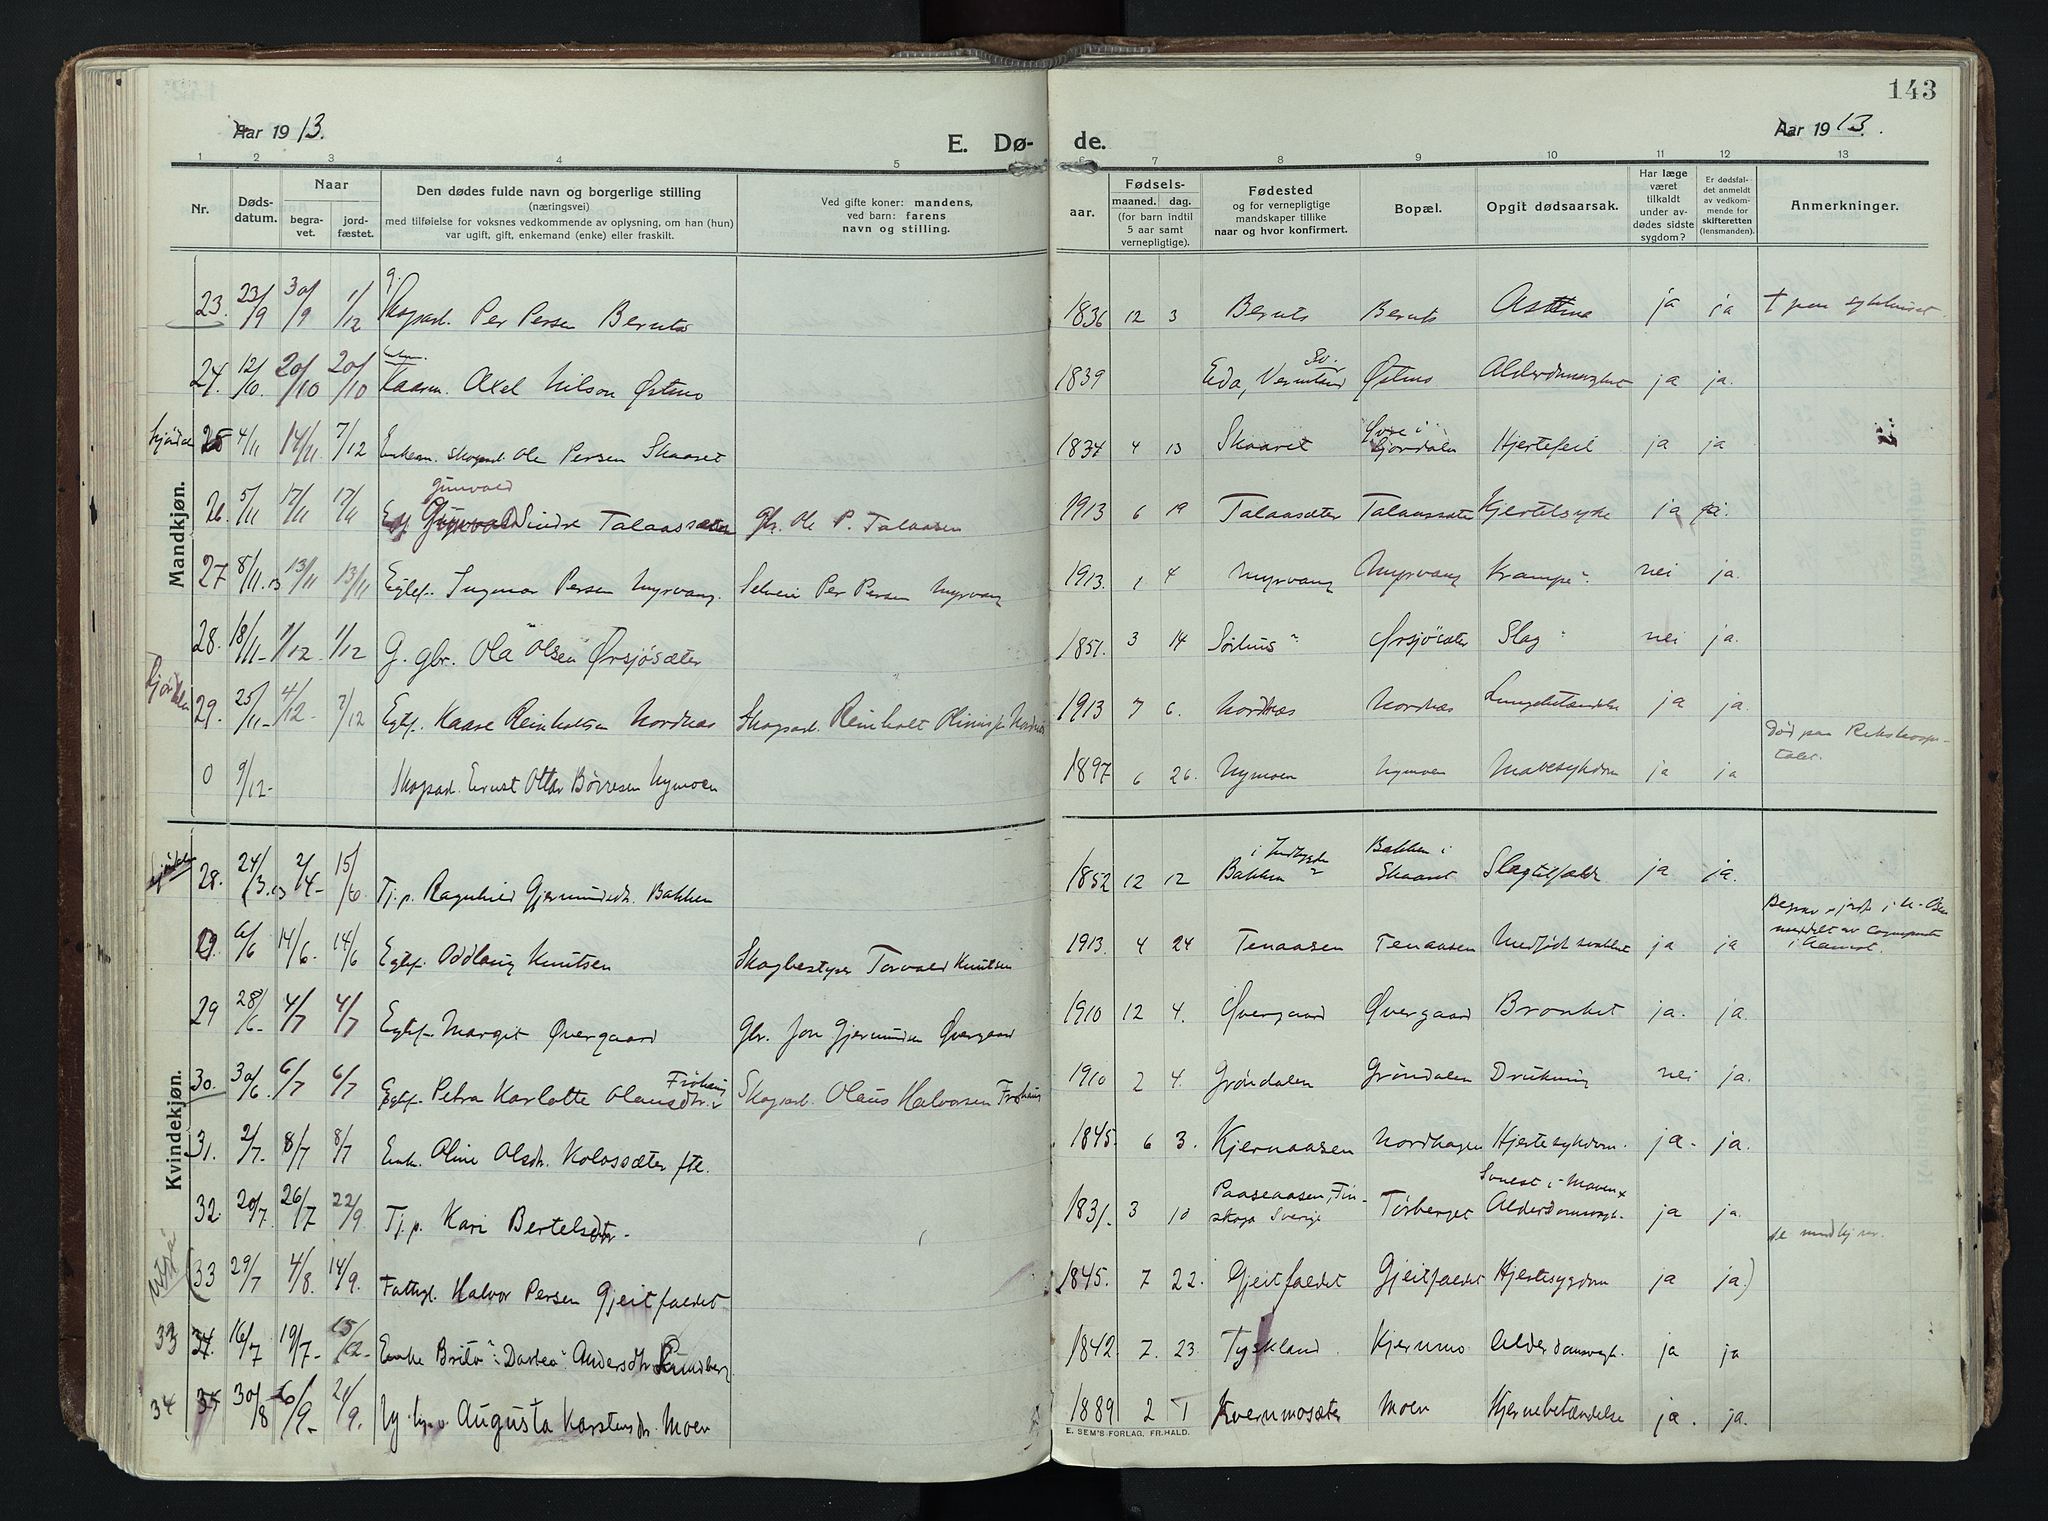 143
Aar 1913.
E. Dø- de.
Aar 1913.
1 2 3 4 5 6 7 8 9 10 11 12 13
Nr.
Døds-
datum.
Naar
begra-
vet.
jord-
fæstet.
Den dødes fulde navn og borgerlige stilling
(næringsvei)
med tilføielse for voksnes vedkommende av oplysning, om han (hun)
var ugift, gift, enkemand (enke) eller fraskilt.
Ved gifte koner: mandens,
ved barn: farens
navn og stilling.
Fødsels-
aar.
maaned.
dag.
(for barn indtil
5 aar samt
vernepligtige).
Fødested
og for vernepligtige
mandskaper tillike
naar og hvor konfirmert.
Bopæl.
Opgit dødsaarsak.
Har læge
været
tilkaldt
under av-
dødes sidste
sygdom?
Er dødsfal-
det anmeldt
av vedkom-
mende for
skifteretten
(lensmanden).
Anmerkninger.
Mandkjøn.
23. 23/9 30/9 1/12 g. Skogsarb. Per Persen Bernts 1836 12 3 Bernts Bernts Astma ja ja † paa sykehuset.
24. 12/10. 20/10 20/10 Kaarm. Axel Nilson Østmo 1839 Eda, Vermland Sv. Østmo ja ja.
25 4/11 14/11 7/12 Enkem. Skogsarb. Ole Persen Skaaret 1834 4 13 Skaaret Øvre i Ljørdalen Hjertefeil ja ja
26. 5/11 17/11 17/11 Gunvald Sindre Talaassæter Gbr. Ole P. Talaasen 1913 6 19 Talaasæter Talaassæter Kjertelsyke ja ja.
27 8/11.13 13/11 13/11 Egtef. Ingmar Persen Myrvang. Selveier Per Persen Myrvang 1913. 1 4 Myrvang Myrvang Krampe nei ja.
28. 18/11. 1/12. 1/12 G. gbr. Ola Olsen Ørsjøsæter 1851. 3 14 Sørhus Ørsjøsæter Slag nei ja.
29. 25/11. 4/12. 7/12 Egtf. Kaare Reinholtsen Nordnæs Skogsarb. Reinholt 1913 7 6. Nordnæs Nordnæs Lungebetændelse ja ja.
0 9/12. Skogsarb. Ernst Otto Børresen Nymoen 1897 6 26. Nymoen Nymoen Mavesykdom ja ja Død paa Rikshospi-
talet.
Kvindekjøn.
28. 24/3.13 2/4. 15/6 Tj.p. Ragnhild Gjermundsdt. Bakken 1852 12 12 Bakken i Bakken i Skaaret Slagtilfælde ja ja.
29. 6/6 14/6. 14/6 Egtf. Oddlaug Knutsen Skogbestyrer Torvald Knutsen 1913. 4 24 Tenaasen Tenaasen Medfødt svakhet ja ja
29 28/6. 4/7 4/7 Egtef. Margit Øvergaard Gbr. Jon Gjermundsen Øvergaard 1910 12 4. Øvergaard Øvergaard Bronket ja. ja.
30. 30/6. 6/7 6/7 Egtef. Petra Karlotte Olausdtr. Frøhaug Skogsarb. Olaus Halvorsen Frøhaug 1910 2 4. Grøndalen Grøndalen Drukning nei ja.
31. 2/7. 8/7 8/7 Enk. Oline Olsdtr. Kolossæter fte. 1845. 6 3. Kjernaasen Nordhagen Hjertesykdom. ja. ja.
32. 20/7. 26/7 22/9. Tj.p. Kari Bertelsdtr. 1831. 3 10 Paaseaasen, Fin-
skoga Sverige Tørberget Alderdomssvagh. ja ja.
(33 29/7 4/8. 14/9. Fattigl. Halvor Persen Gjeitfaldet 1845. 7 22. Gjeitfaldet Gjeitfaldet Hjertesygdom ja ja) se mandkjøn.
33 34. 16/7 19/7. 15/12. Enke Brita Dorthea Andersdtr. Sundberg 1842 7. 23. Tyskland. Kjernmo Alderdomssvagh. ja ja
34 35 30/8 6/9. 21/9. Augusta Karstensdtr. Moen 1889 2 1 Kvernmosæter Moen Hjernebetændelse ja. ja.
E. SEM'S FORLAG, FR.HALD.